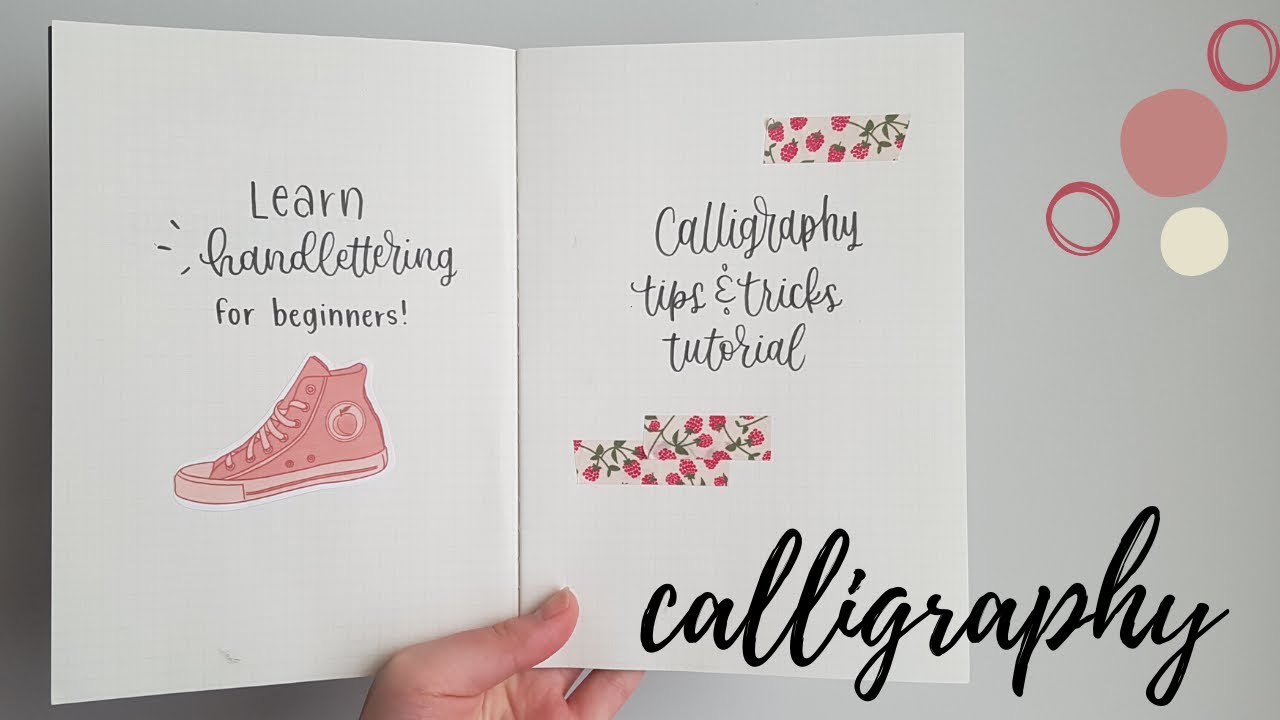 Learn
handlettering
for beginners!
Calligraphy
tips & tricks
tutorial
calligraphy